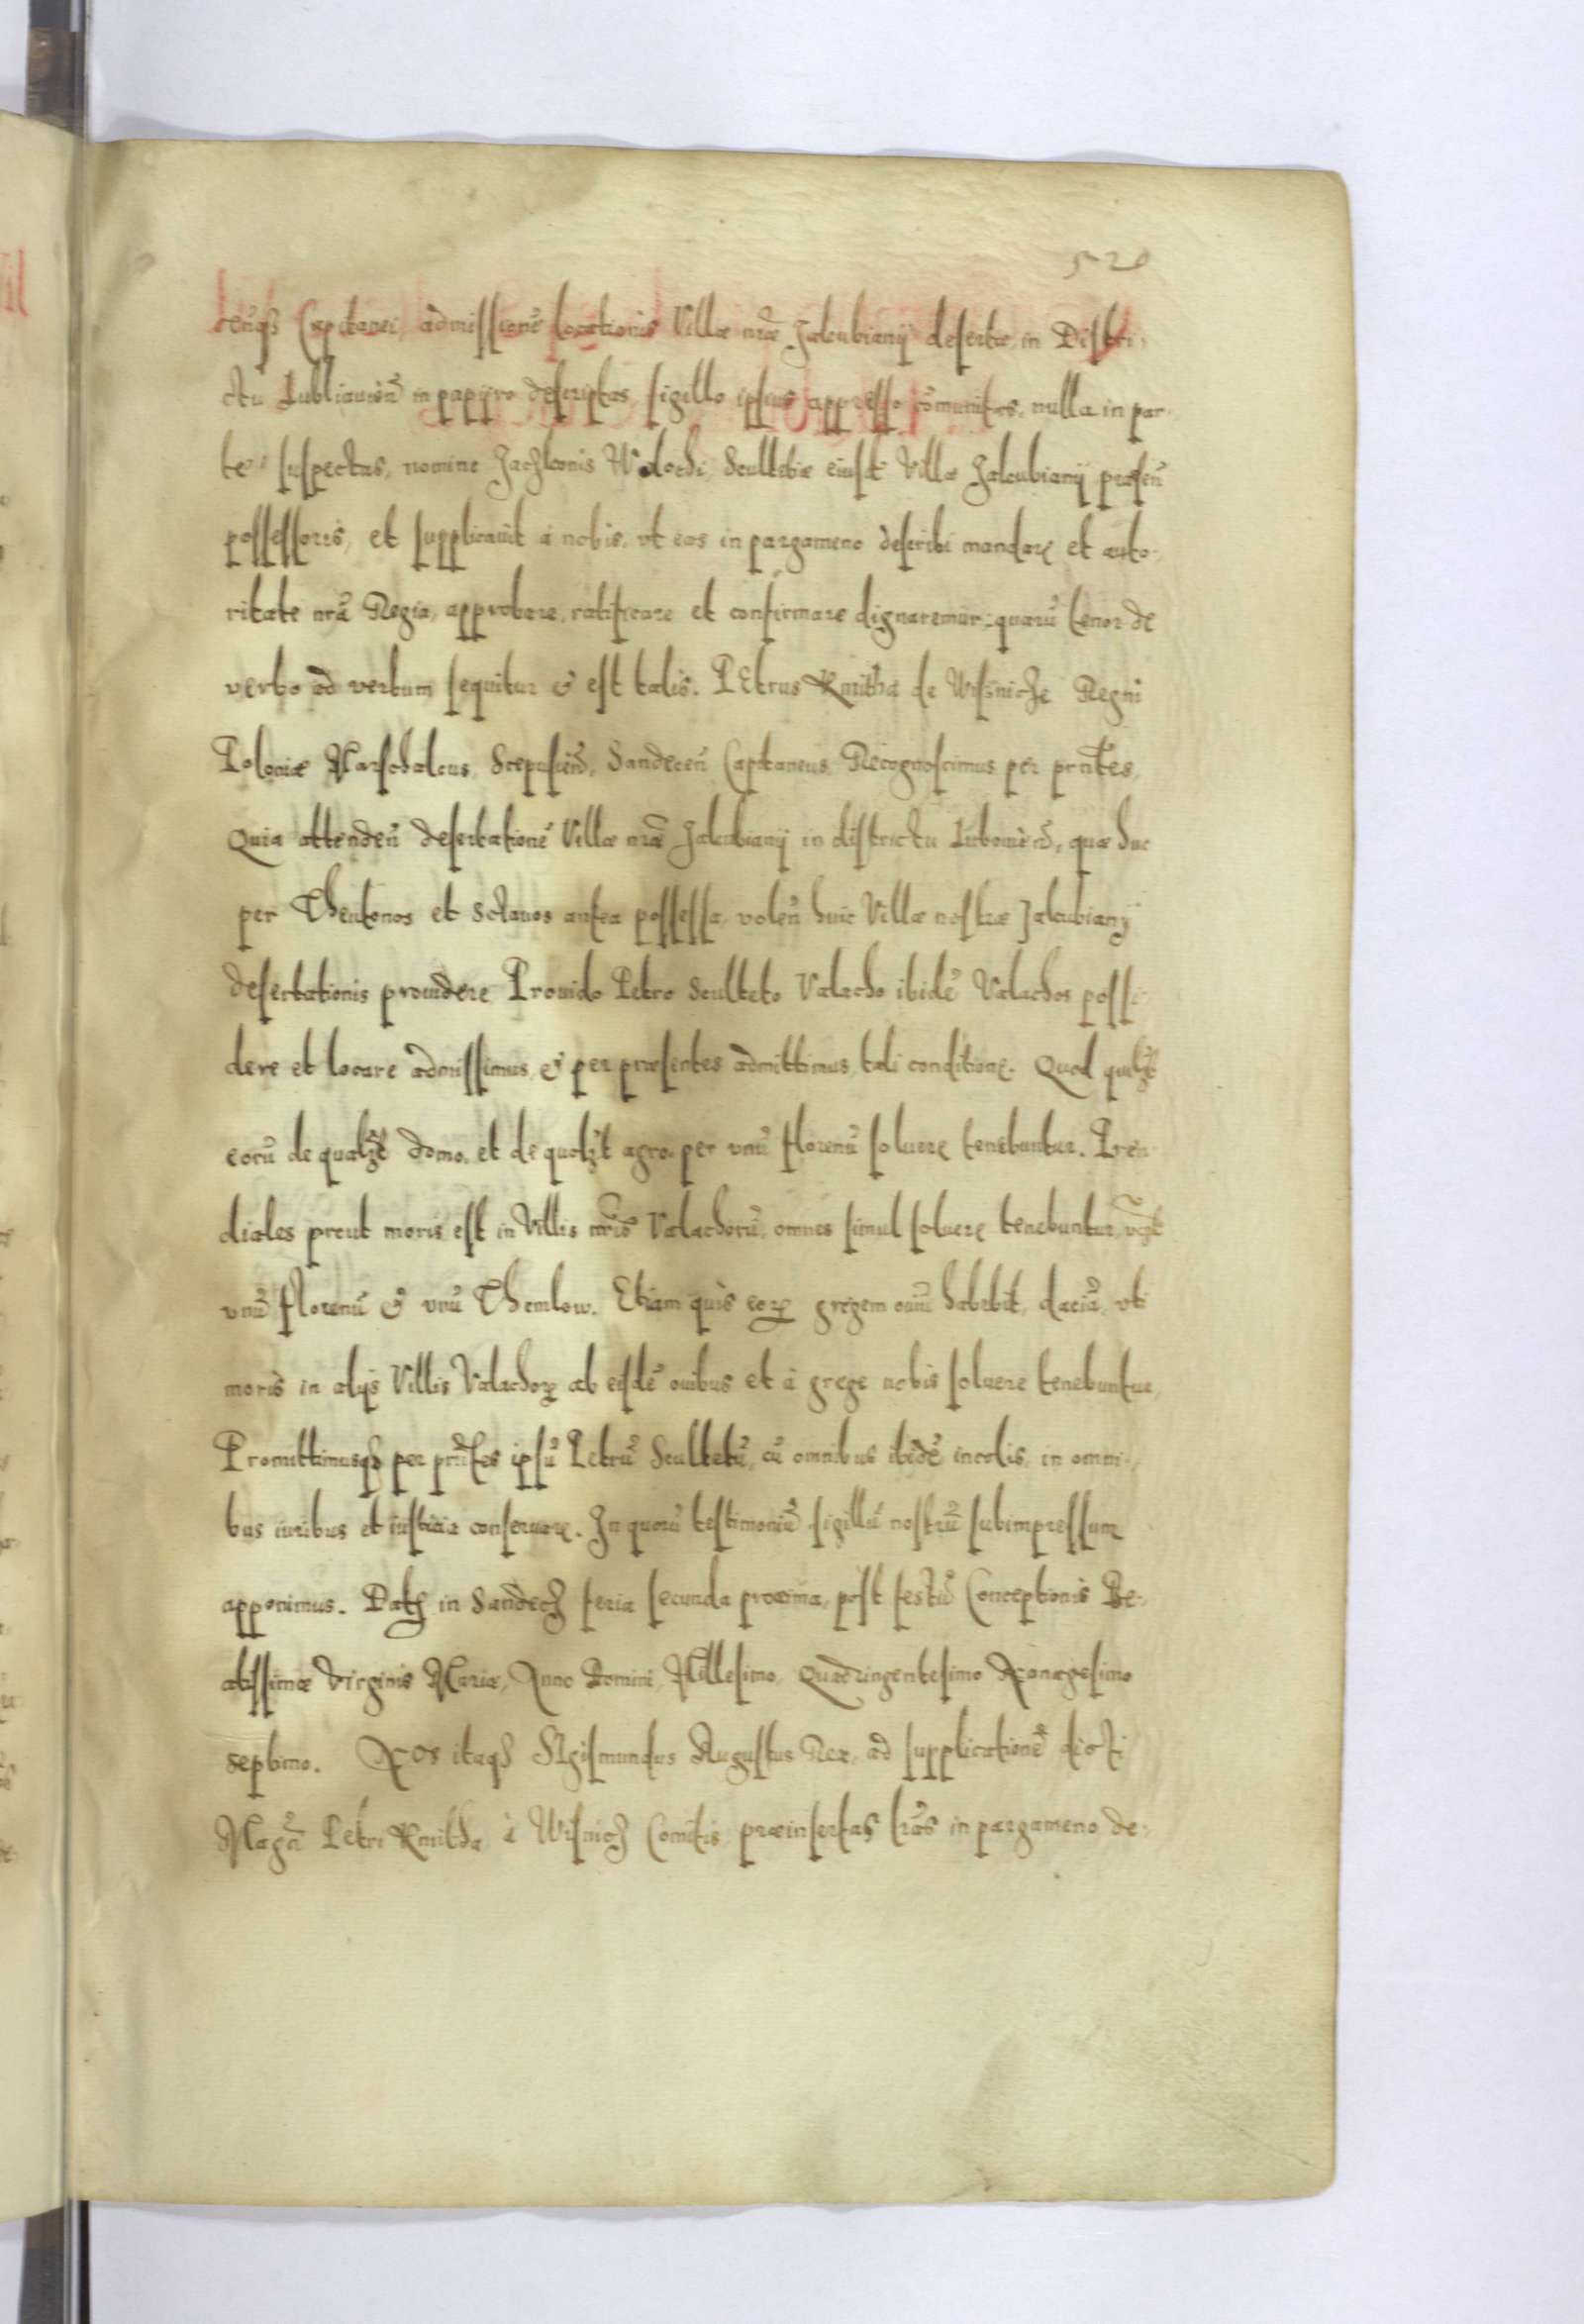 520
cen̄qȝ Capitanei, admissionē locationis Villæ nr̄æ Jakubiany desertæ, in Distri-
ctu Lublauien̄ in papyro descriptas, sigillo ipsius appresso cōmunitas, nulla in par-
te suspectas, nomine Jachkonis Wolochi Scultetiæ eiusd̄ Villæ Jakubiany præsen̄
possessoris, et supplicauit à nobis, vt eas in pargameno describi mandarꝫ et auto-
ritate nr̄ā Regia, approbare, ratificare et confirmare dignaremur: quarū tenor de
verbo ad verbum sequitur & est talis. PEtrus Kmitha de Wisnicze Regni
Poloniæ Marschalcus, Scepusien̄, Sandecen̄ Capitaneus Recognoscimus per pn̄tes,
Quia attenden̄ desertationē Villæ nr̄æ Jakubiany in districtu Lubowien̄, quæ huc
per Theutonos et Sclauos antea possessa, volen̄ huic Villæ nostræ Jakubiany
desertationis prouidere, Prouido Petro Sculteto Valacho ibidē Valachos possi-
dere et locare admissimus, & per præsentes admittimus, tali conditionꝫ. Quod quilȝt
eorū de qualȝt domo, et de quolȝt agro, per vnū florenū soluerꝫ tenebuntur. Pren-
diales prout moris est in Villis nr̄is Valachorū, omnes simul soluerꝫ tenebuntur, vcȝt
vnū florenū & vnū Themlow. Etiam quis eoꝝ gregem ouiū habebit, daciā, vti
moris in alijs Villis Valachoꝝ ab eisdē ouibus et à grege nobis soluere tenebuntur,
Promittimusqȝ per pn̄tes ipsū Petrū Scultetū, cū omnibus ibidē incolis, in omni-
bus iuribus et iusticia conseruarꝫ. In quorū testimoniū sigillū nostrū subimpressum
apponimus. Datꝫ in Sandecȝ feria secunda proxima, post festū Conceptionis Be-
atissimæ Virginis Mariæ, Anno Domini, Millesimo, Quadringentesimo Nonagesimo
septimo. Nos itaqȝ SIgismundus Augustus Rex, ad supplicationē dicti
Magn̄ Petri Kmitha à Wisnicȝ Comitis, præinsertas lr̄as in pargameno de-